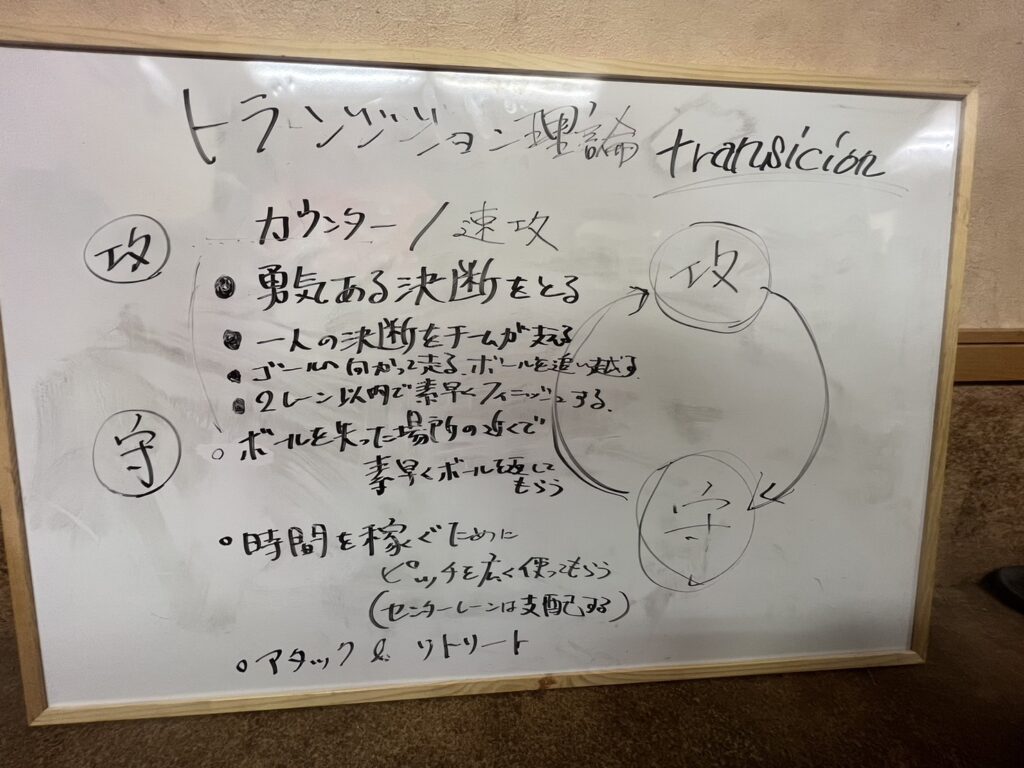 トランジション理論 transicion
攻
カウンター / 速攻
攻
勇気ある決断をとる
一人の決断をチームが走る
ゴールへ向かって走る、ボールを追い越す.
2レーン以内で素早くフィニッシュする.
守
ボールを失った場所の近くで
素早くボールを返して
もらう
守
時間を稼ぐために
ピッチを広く使ってもらう
(センターレーンは支配する)
アタック & リトリート